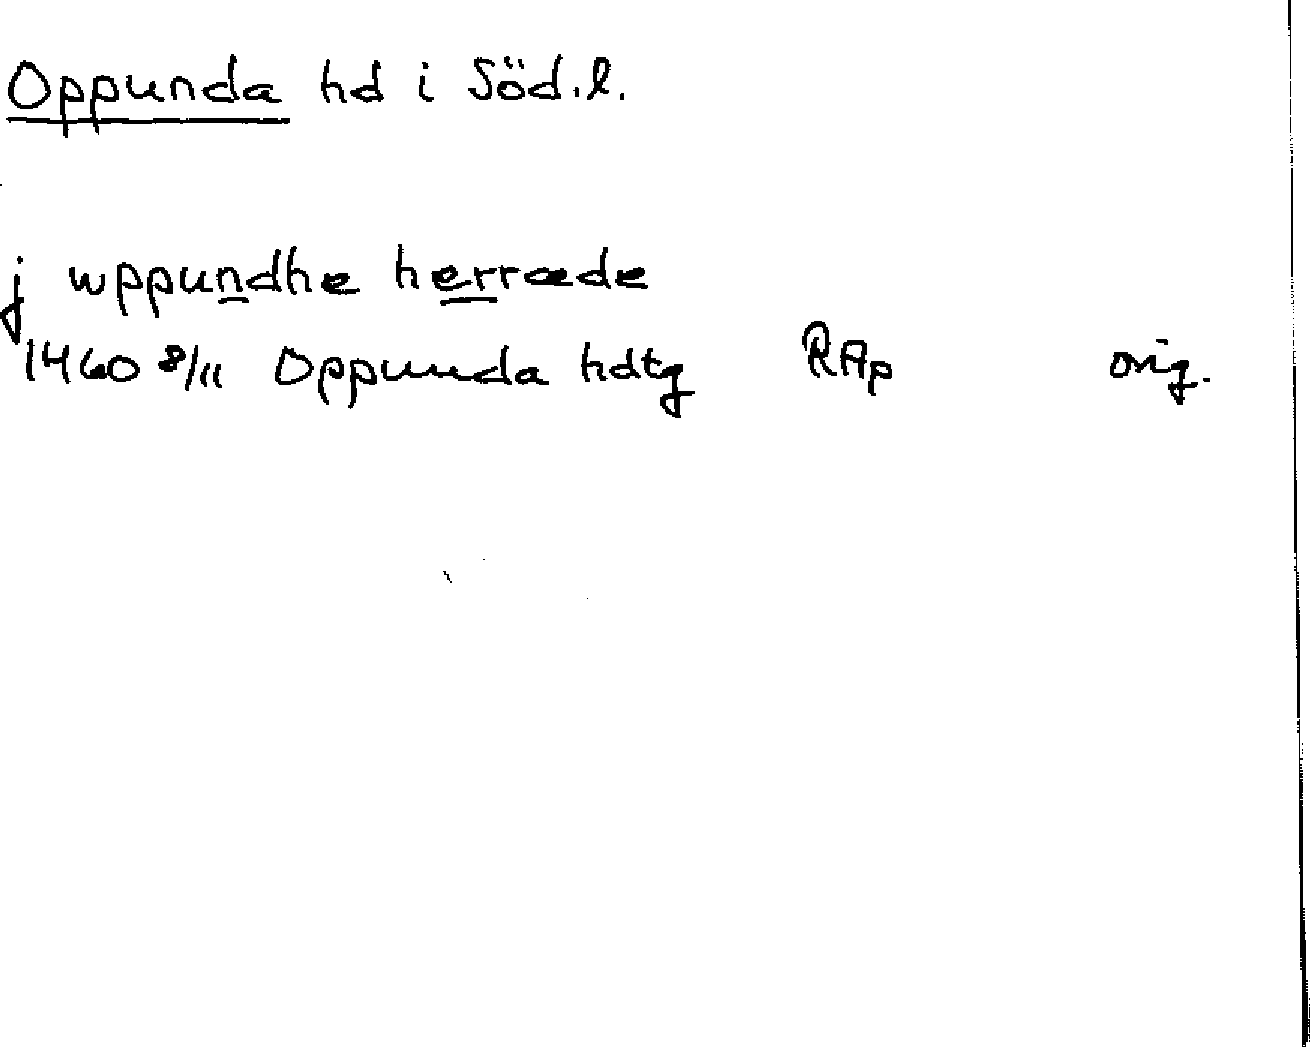 Oppunda hd i Söd.l.
j wppundhe herræde
1460 8/11 Oppunda hdtg RAp orig.